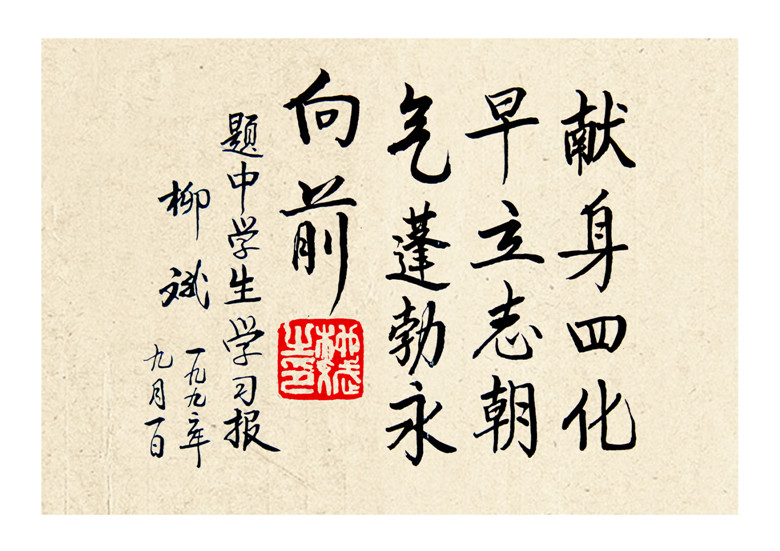 献身四化
早立志朝
气蓬勃永
向前
柳斌之印
题中学生学习报
柳斌
一九九二年
九月一日